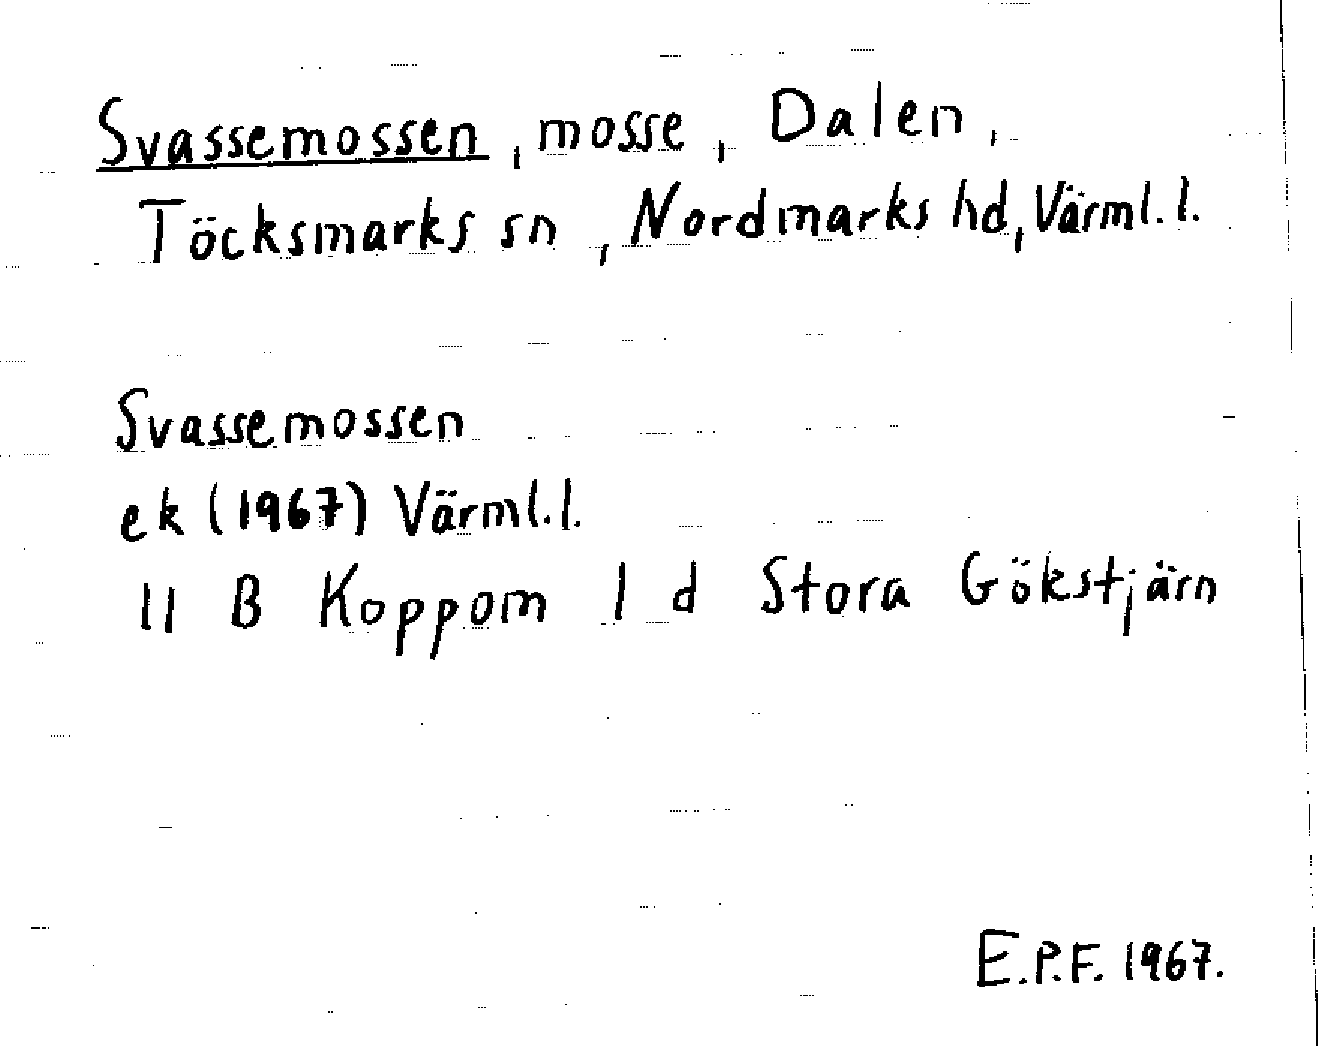 Svassemossen, mosse, Dalen,
Töcksmarks sn, Nordmarks hd, Värml. l.
Svassemossen
ek (1967) Värml. l.
11 B Koppom 1 d Stora Gökstjärn
E.P.F. 1967.